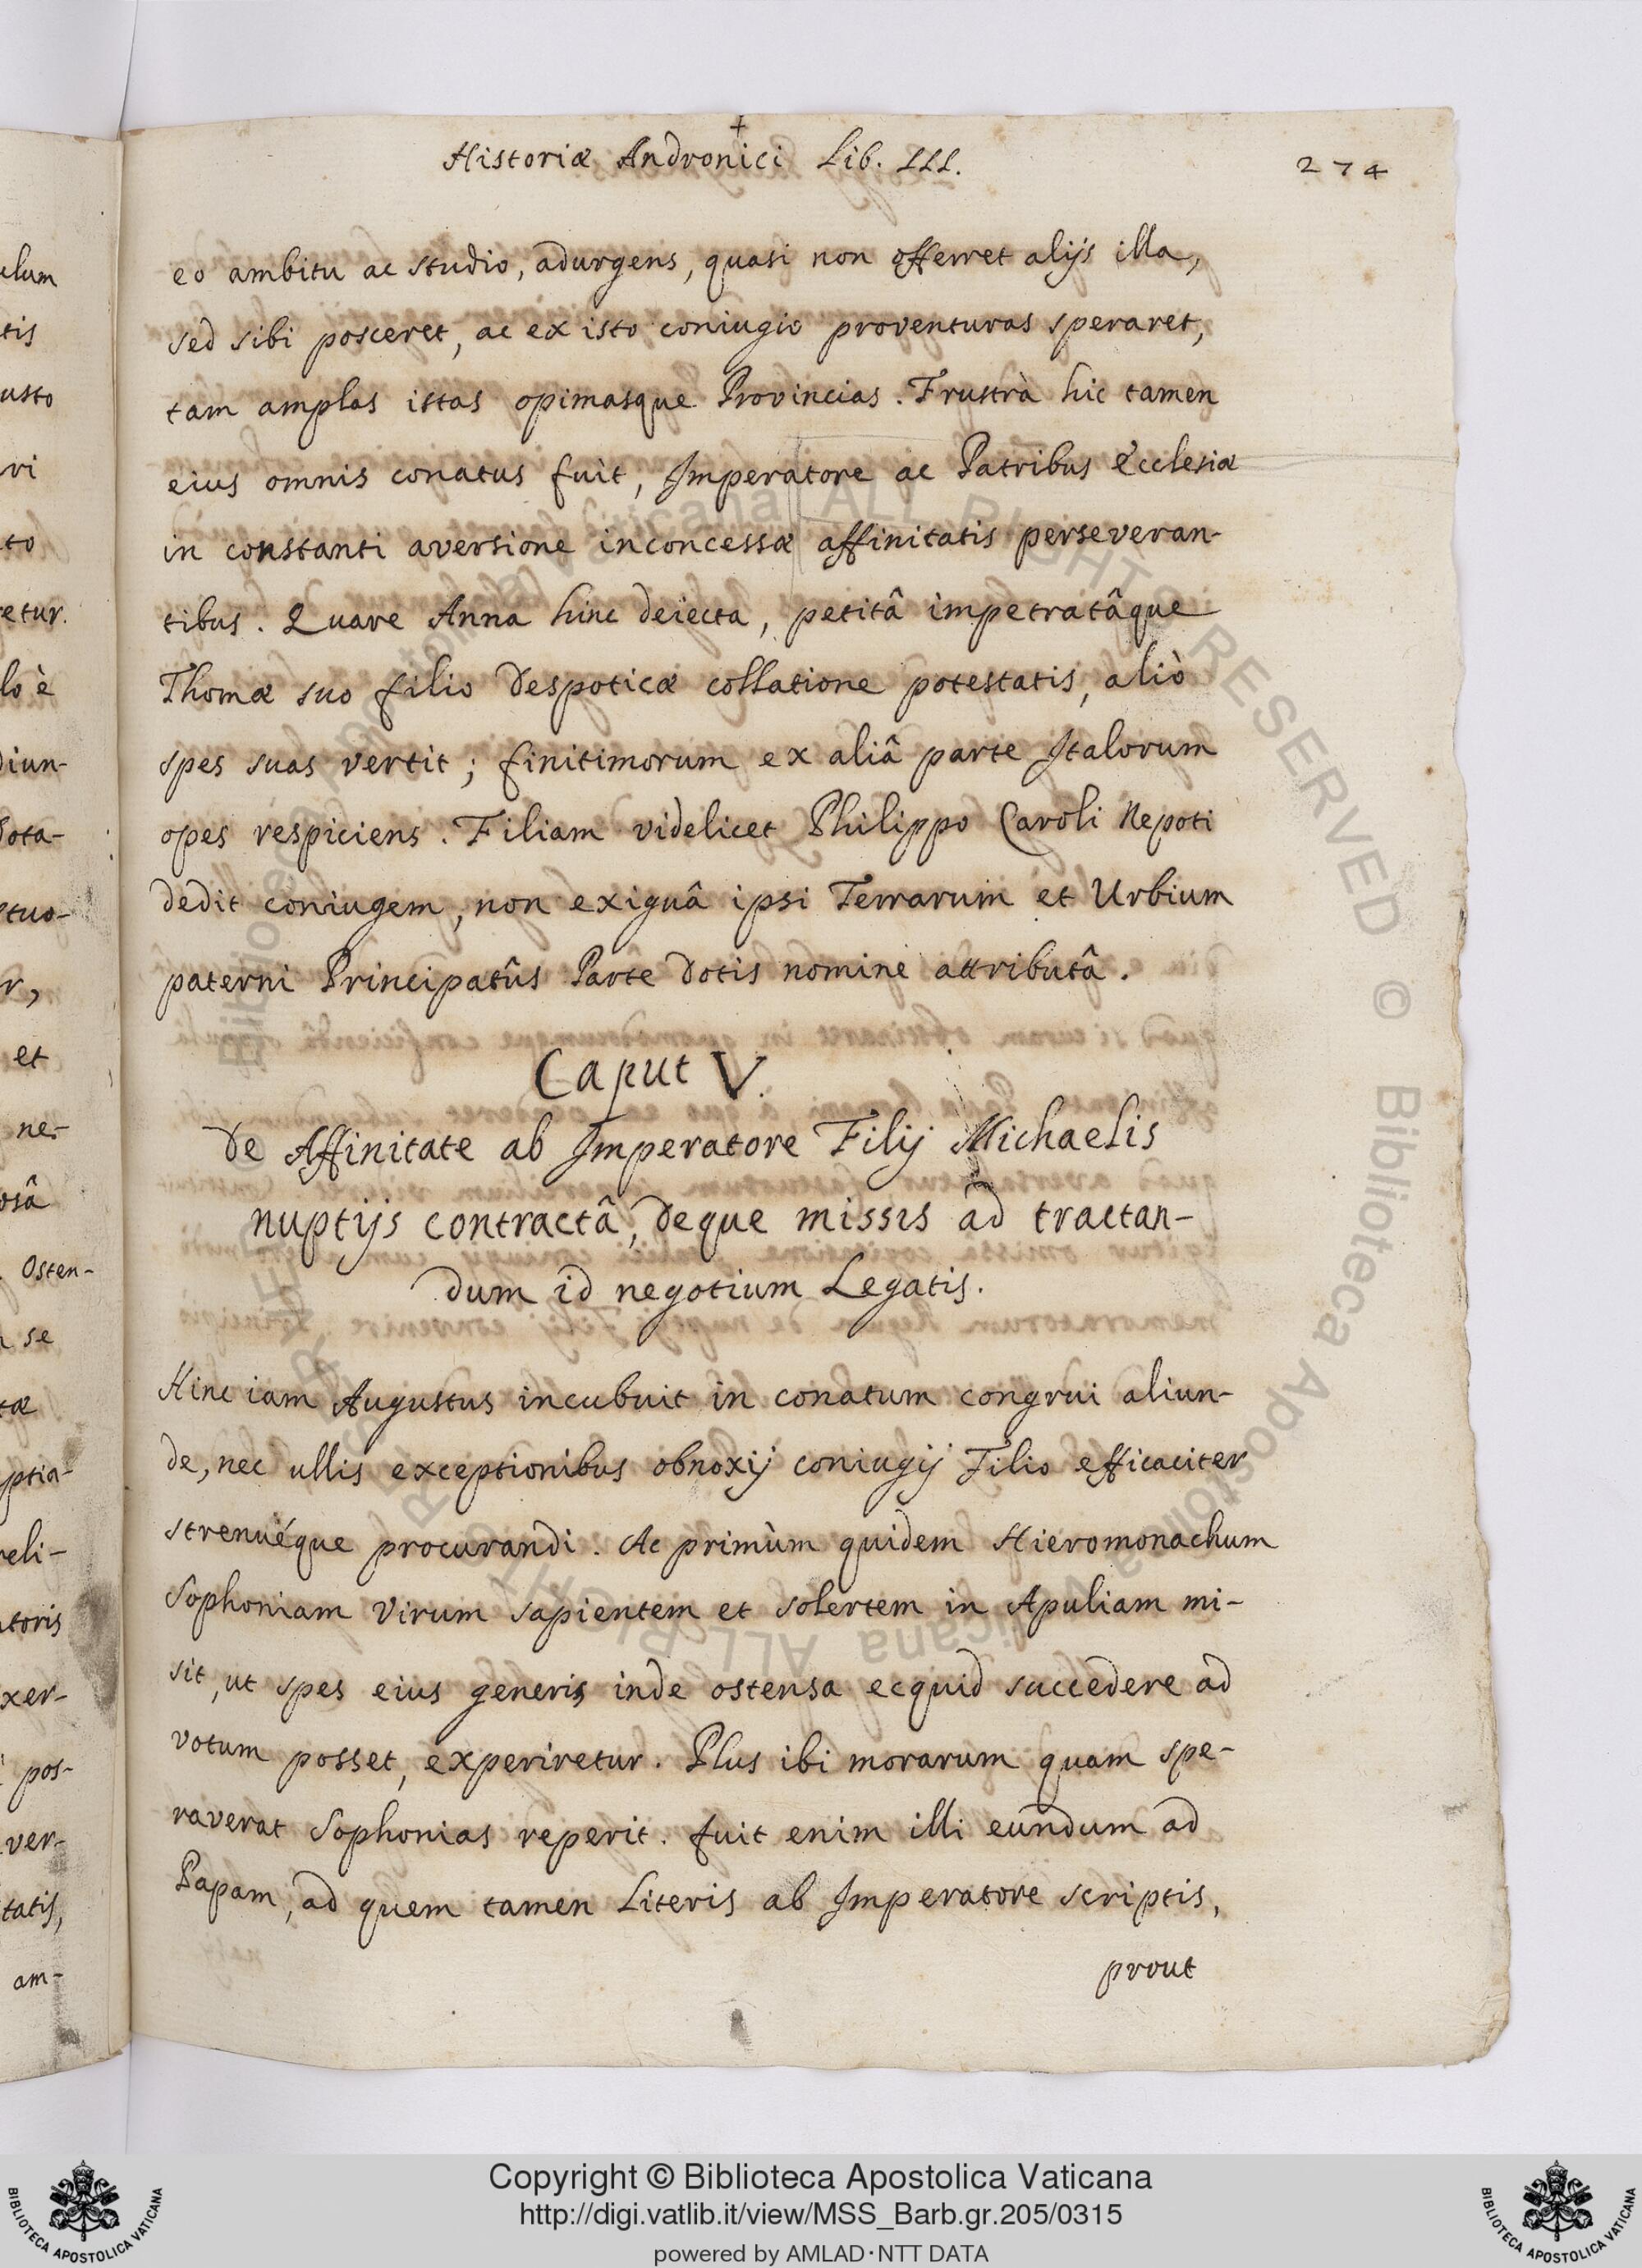 +
Historiæ Andronici Lib. III.
274
eo ambitu ac studio, adurgens, quasi non offerret alijs illa,
sed sibi posceret, ac ex isto coniugio proventuras speraret,
tam amplas istas opimasque Provincias. Frustrà hic tamen
eius omnis conatus fuit, Imperatore ac Patribus Ecclesiæ
in constanti aversione inconcessæ affinitatis perseveran-
tibus. Quare Anna hinc deiecta, petitâ impetratâque
Thomæ suo filio Despoticæ collatione potestatis, aliò
spes suas vertit; finitimorum ex aliâ parte Italorum
opes respiciens. Filiam videlicet Philippo Caroli Nepoti
dedit coniugem, non exiguâ ipsi Terrarum et Urbium
paterni Principatûs Parte dotis nomine attributâ.
Caput V.
De Affinitate ab Imperatore Filij Michaelis
nuptijs contractâ, deque missis ad tractan-
dum id negotium Legatis.
Hinc iam Augustus incubuit in conatum congrui aliun-
de, nec ullis exceptionibus obnoxij coniugij Filio efficaciter
strenuéque procurandi. Ac primùm quidem Hieromonachum
Sophoniam Virum sapientem et solertem in Apuliam mi-
sit, ut spes eius generis inde ostensa ecquid succedere ad
votum posset, experiretur. Plus ibi morarum quam spe-
raverat Sophonias reperit. fuit enim illi eundum ad
Papam, ad quem tamen Literis ab Imperatore scriptis,
prout
ulum
tis
usto
vi
to
etur.
lo è
diun-
dota-
stuo-
r,
et
ne-
osâ
Osten-
se
tæ
ptia-
reli-
atoris
xer-
pos-
ver-
tatis,
am-
Biblioteca Apostolica Vaticana ALL RIGHTS RESERVED © Biblioteca Apostolica Vaticana ALL RIGHTS RESERVED
Copyright © Biblioteca Apostolica Vaticana
http://digi.vatlib.it/view/MSS_Barb.gr.205/0315
powered by AMLAD·NTT DATA
BIBLIOTECA APOSTOLICA VATICANA
BIBLIOTECA APOSTOLICA VATICANA